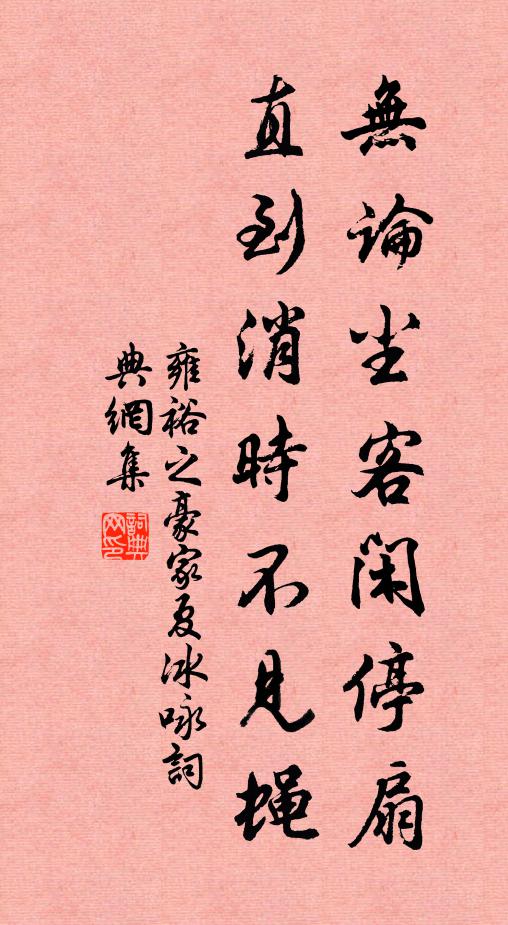 無論尘客闲停扇
直到消時不見蝇
雍裕之豪家夏冰咏詞
典網集
詞典
网印